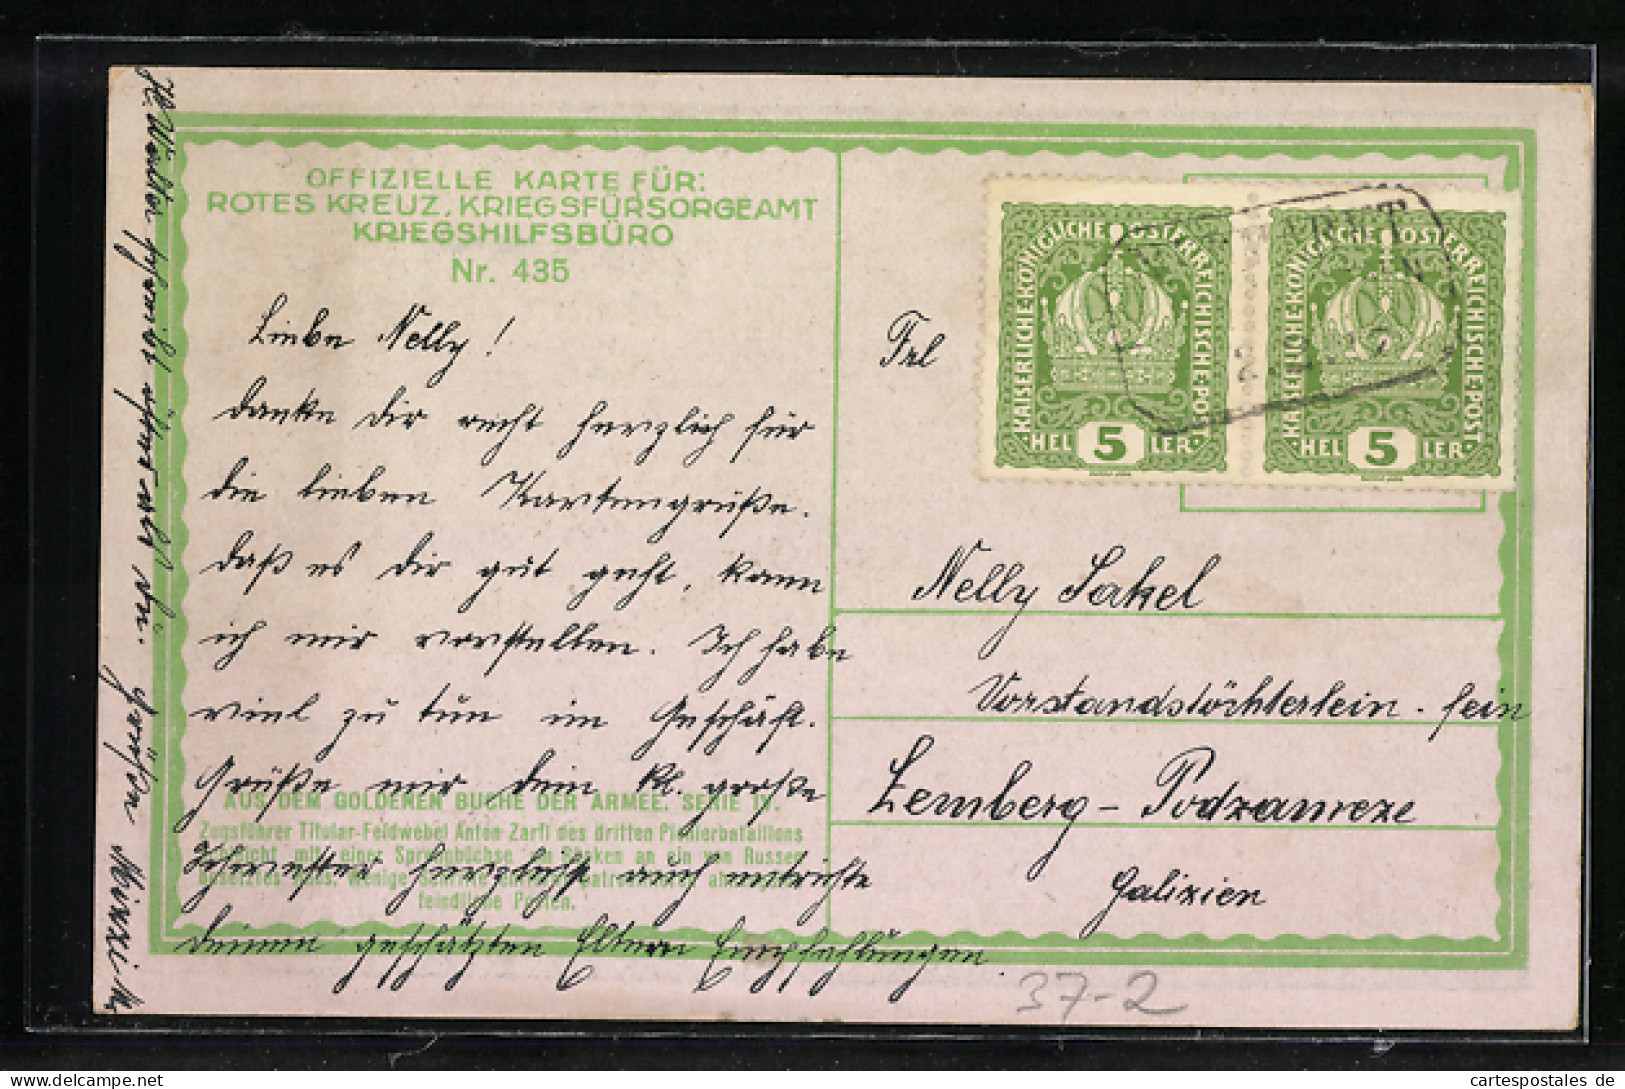 OFFIZIELLE KARTE FÜR:
ROTES KREUZ, KRIEGSFÜRSORGEAMT
KRIEGSHILFSBÜRO
Nr. 435
Liebe Nelly!
danke dir recht herzlich für
die lieben Kartengrüße.
daß es dir gut geht, kann
ich mir vorstellen. Ich habe
viel zu tun im Geschäft.
Grüße mir dein kl. große
AUS DEM GOLDENEN BUCHE DER ARMEE. SERIE IV.
Zugsführer Titular-Feldwebel Anton Zarfl des dritten Pionierbataillons
schleicht mit einer Sprengbüchse an ein von Russen
besetztes Haus, wenige Schritte
feindliche Posten.
Schwester herzlichst auch entrichte
deinen geschätzten Eltern Empfehlungen.
Mizzi
Frl
KAISERLICHE·KÖNIGLICHE ÖSTERREICHISCHE·POST
HEL 5 LER
KAISERLICHE·KÖNIGLICHE ÖSTERREICHISCHE·POST
HEL 5 LER
Nelly Sakel
Vorstandstöchterlein.fein
Lemberg - Podzamcze
Galizien
37-2
cartespostales de